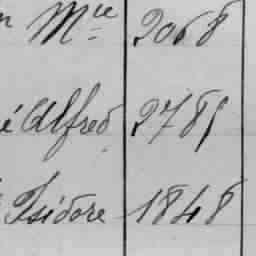 Mce 2068
é Alfred 2785
Isidore 1848